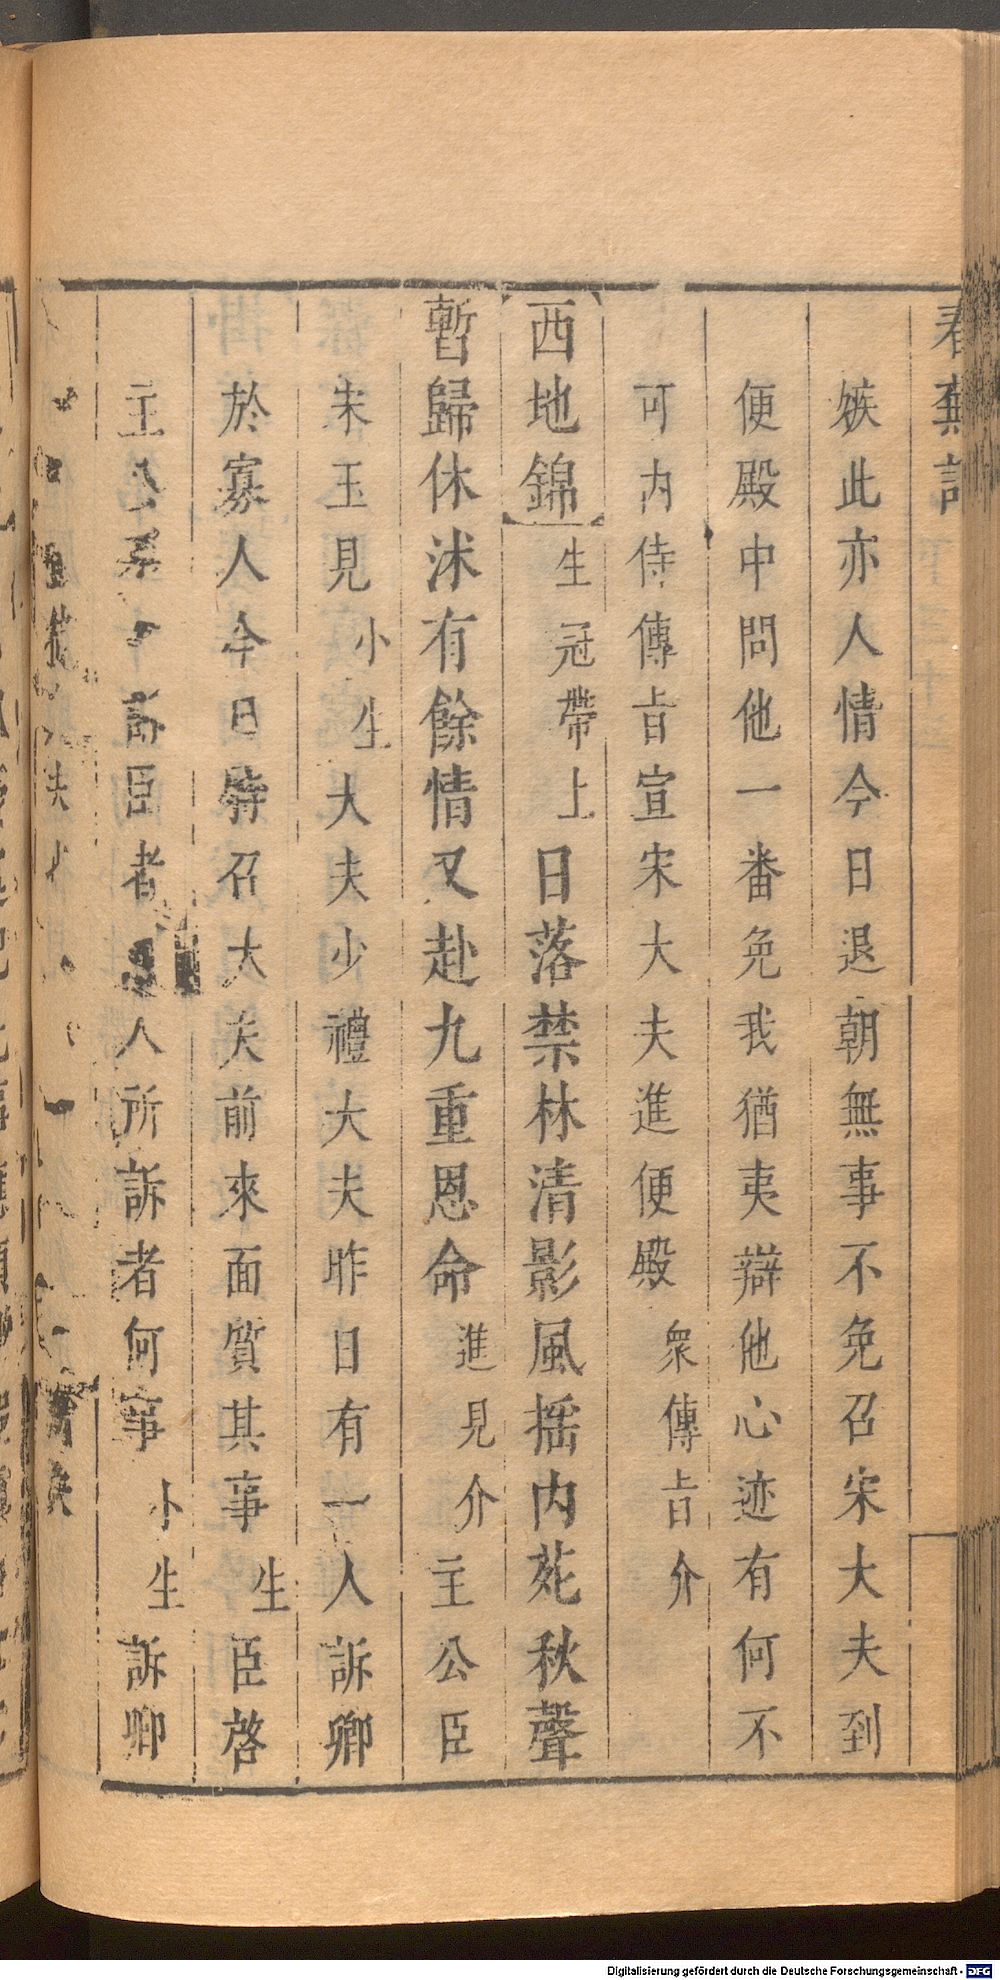 春蕪記
嫉此亦人情今日退朝無事不免召宋大夫到
便殿中問他一番免我猶夷辯他心迹有何不
可内侍傳旨宣宋大夫進便殿衆傳旨介
西地錦生冠帶上日落禁林清影風揺内苑秋聲
暫歸休沐有餘情又赴九重恩命進見介主公臣
宋玉見小生大夫少禮大夫昨日有一人訴卿
於寡人今日特召大夫前來面質其事生臣啓
主公訴臣者人所訴者何事小生訴卿
Digitalisierung gefördert durch die Deutsche Forschungsgemeinschaft - DFG